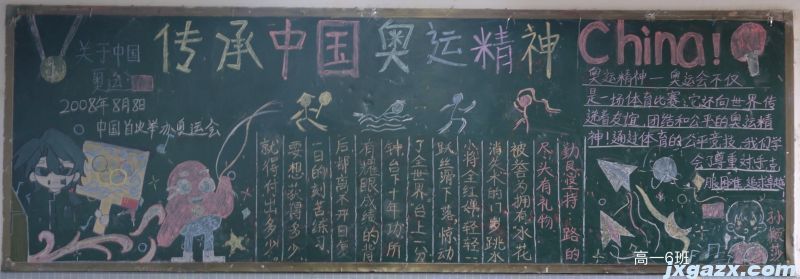 传承中国奥运精神
China!
关于中国
奥运
2008年8月8日
中国首次举办奥运会
奥运精神一奥运会不仅
是一场体育比赛,它还向世界传
递着友谊、团结和公平的奥运精
神!通过体育的公平竞技,我们学
会了尊重对手克
服困难 追求卓越
勤恳坚持,路的
尽头有礼物
被誉为拥有"水花
消失术"的门,跳水
小将全红婵轻轻一
跃丝滑下落惊动
了全世界台上一分
钟台下十年功所
有耀眼成绩的背
后都离不开日复
一日的刻苦练习
要想获得多少
就得付出多少。
高一6班
jxgazx.com